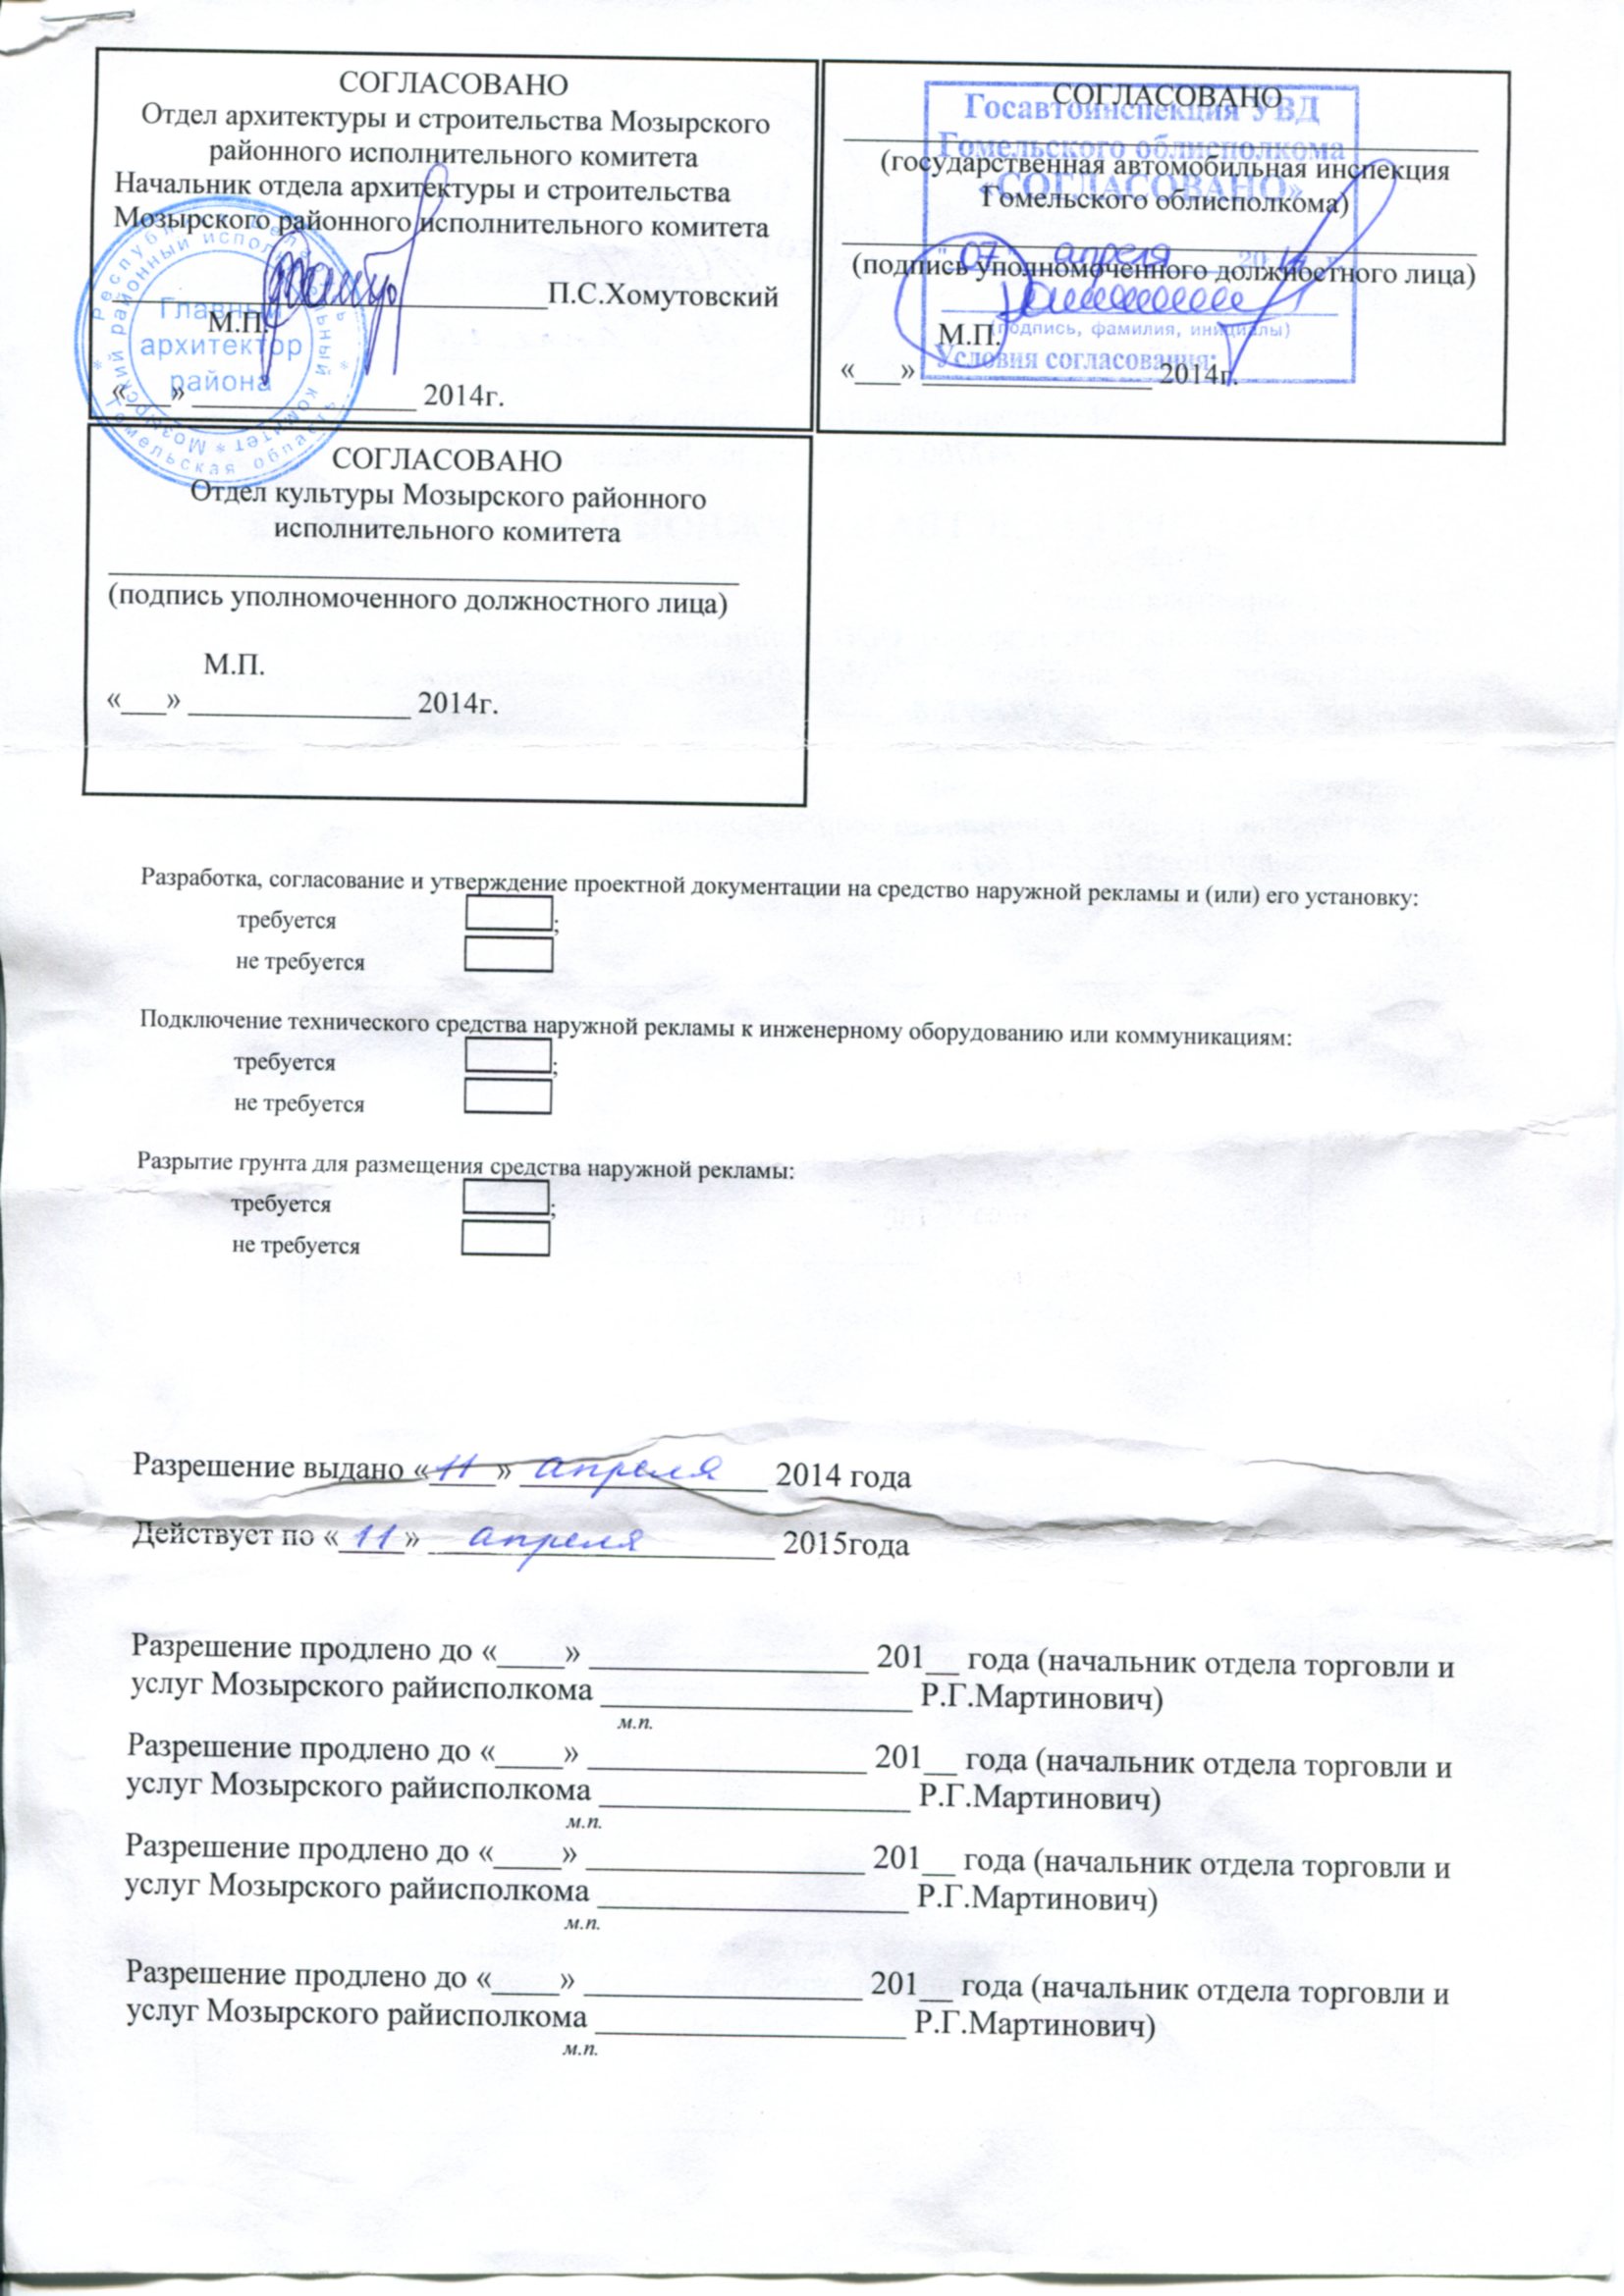 СОГЛАСОВАНО
Отдел архитектуры и строительства Мозырского
районного исполнительного комитета
Начальник отдела архитектуры и строительства
Мозырского районного исполнительного комитета
____________________________П.С.Хомутовский
М.П.
«___» _______________ 2014г.
Республика Беларусь * Гомельская область *
Мозырский районный исполнительный комитет *
Главный
архитектор
района
СОГЛАСОВАНО
(государственная автомобильная инспекция
Гомельского облисполкома)
(подпись уполномоченного должностного лица)
М.П.
«___» _______________ 2014г.
Госавтоинспекция УВД
Гомельского облисполкома
«СОГЛАСОВАНО»
"07" апреля 2014 г.
(подпись, фамилия, инициалы)
Условия согласования:
СОГЛАСОВАНО
Отдел культуры Мозырского районного
исполнительного комитета
(подпись уполномоченного должностного лица)
М.П.
«___» _______________ 2014г.
Разработка, согласование и утверждение проектной документации на средство наружной рекламы и (или) его установку:
требуется ;
не требуется
Подключение технического средства наружной рекламы к инженерному оборудованию или коммуникациям:
требуется ;
не требуется
Разрытие грунта для размещения средства наружной рекламы:
требуется ;
не требуется
Разрешение выдано «11» апреля 2014 года
Действует по «11» апреля 2015года
Разрешение продлено до «____» _________________ 201__ года (начальник отдела торговли и
услуг Мозырского райисполкома ___________________ Р.Г.Мартинович)
м.п.
Разрешение продлено до «____» _________________ 201__ года (начальник отдела торговли и
услуг Мозырского райисполкома ___________________ Р.Г.Мартинович)
м.п.
Разрешение продлено до «____» _________________ 201__ года (начальник отдела торговли и
услуг Мозырского райисполкома ___________________ Р.Г.Мартинович)
м.п.
Разрешение продлено до «____» _________________ 201__ года (начальник отдела торговли и
услуг Мозырского райисполкома ___________________ Р.Г.Мартинович)
м.п.